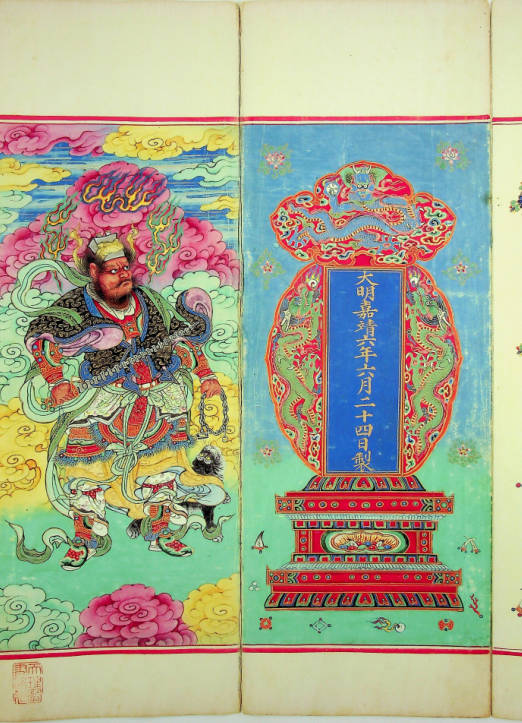 大明嘉靖六年六月二十四日製